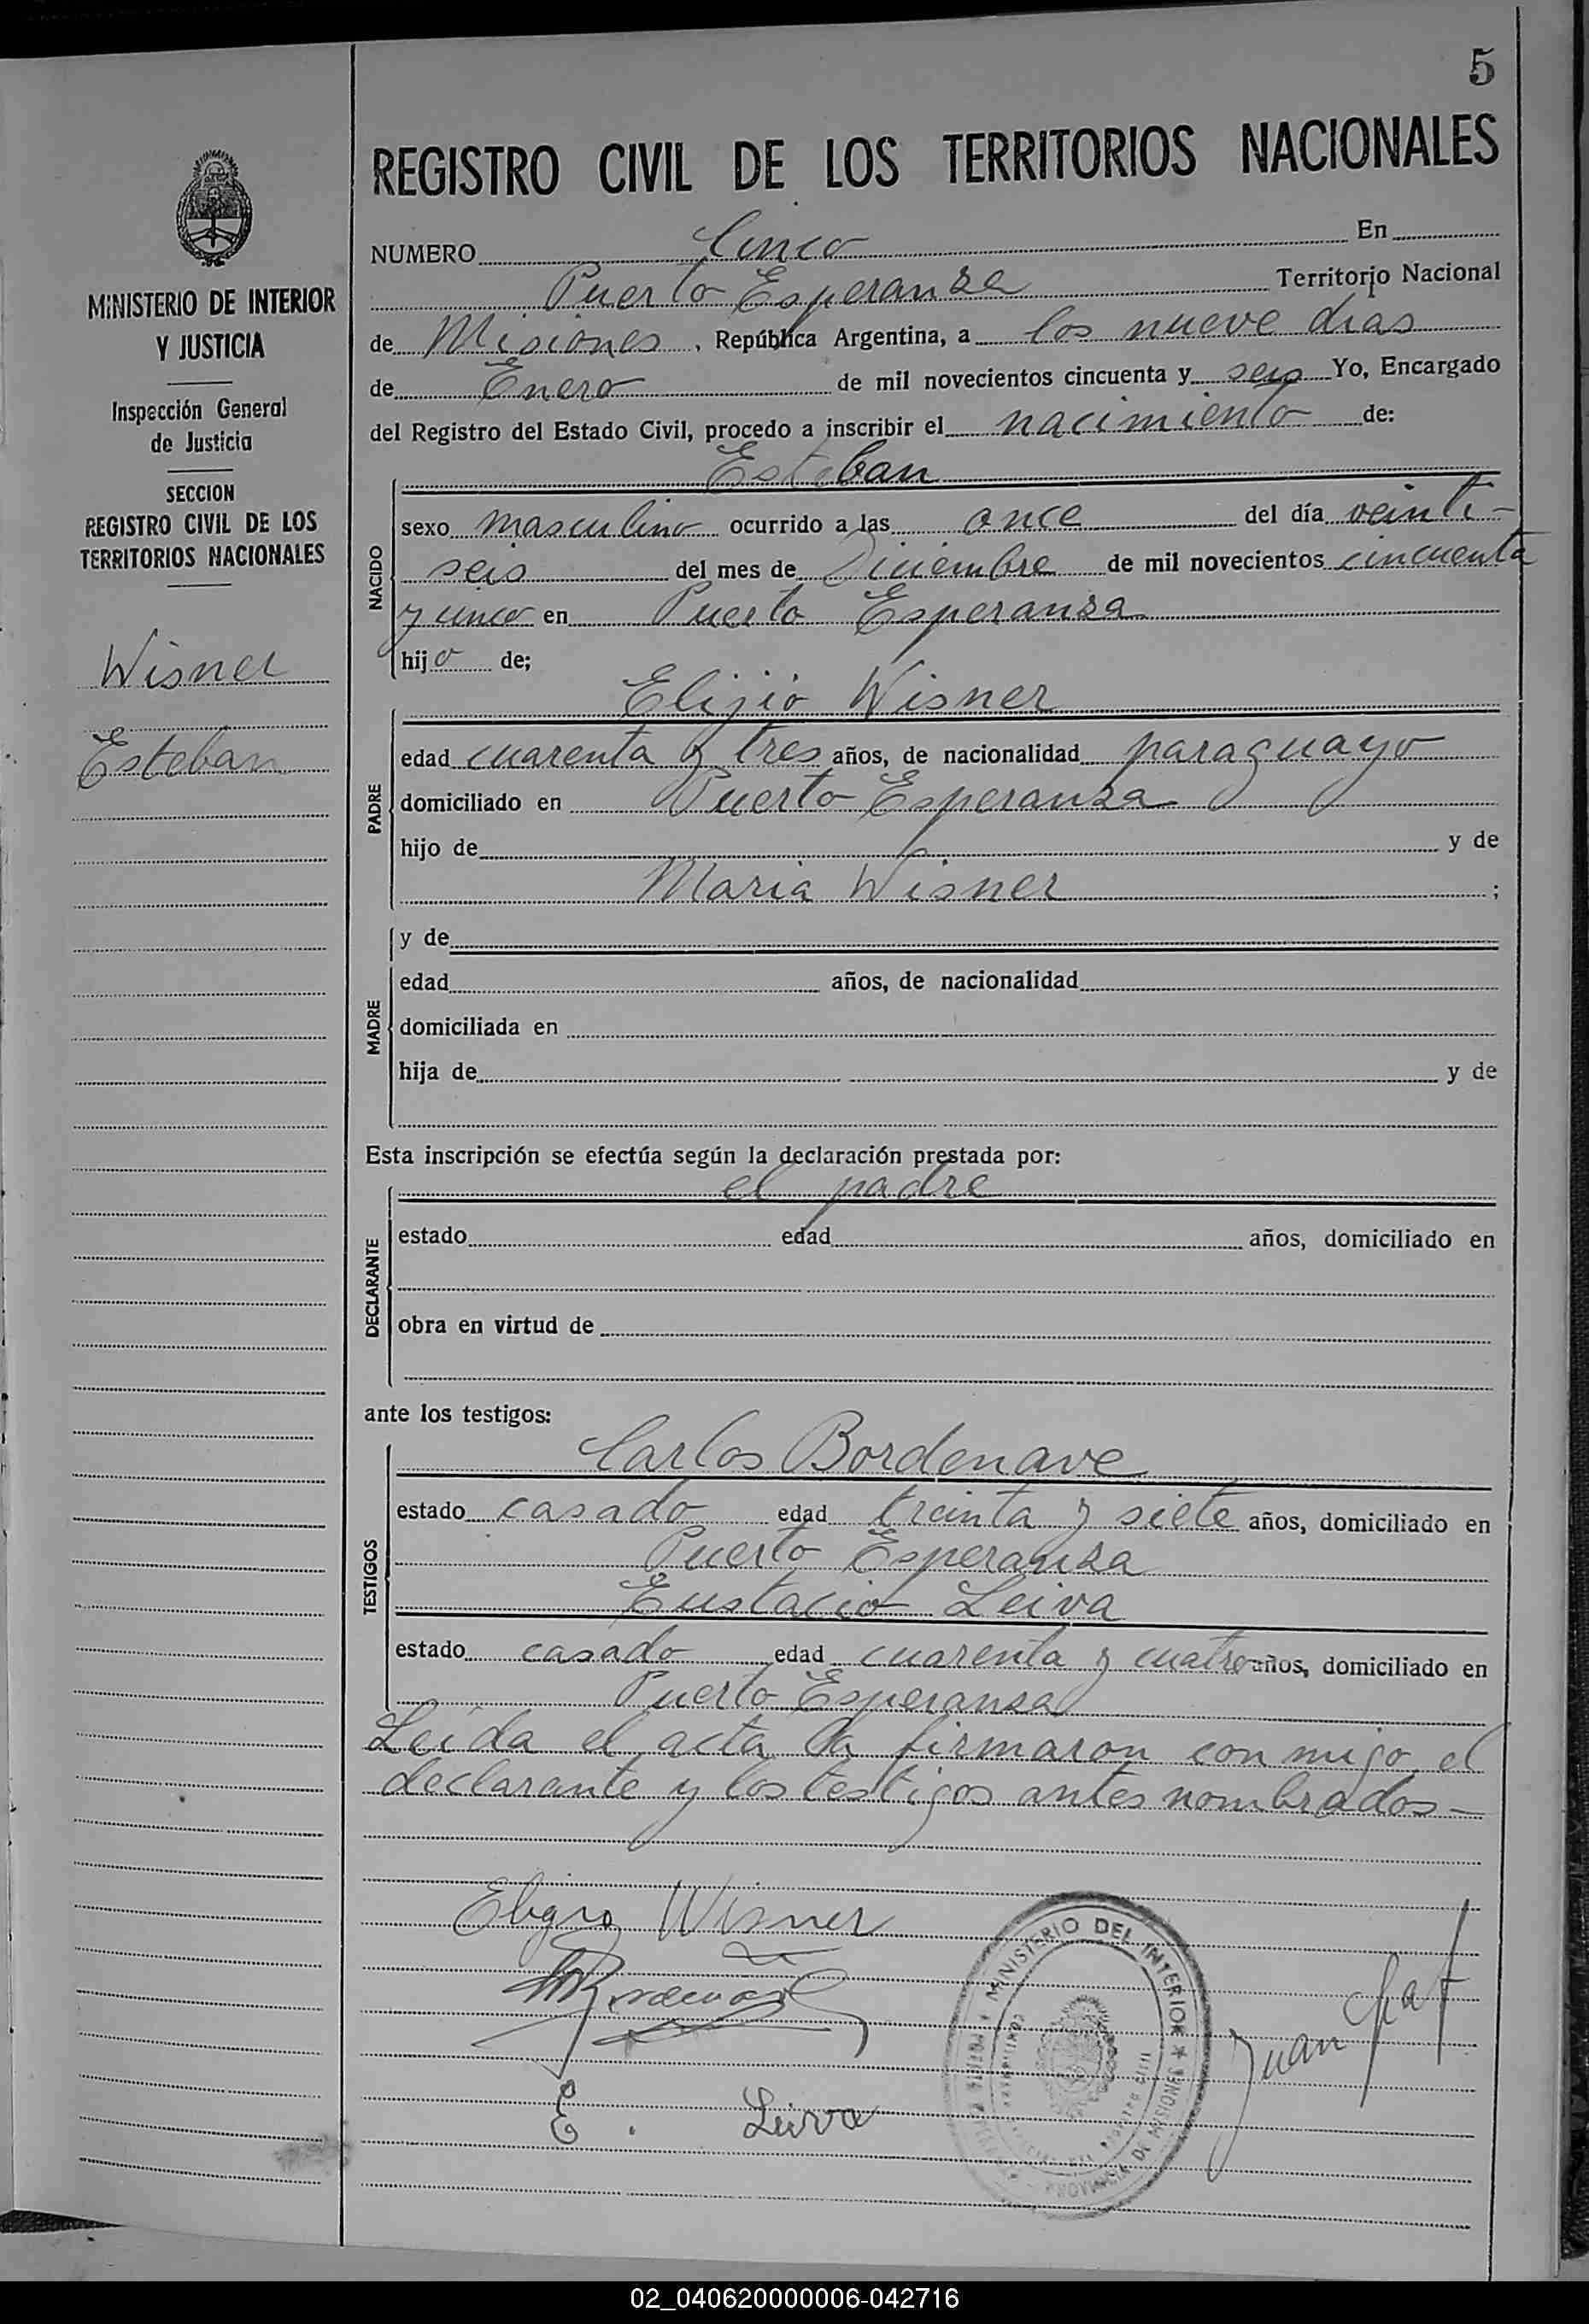 5
REGISTRO CIVIL DE LOS TERRITORIOS NACIONALES
MINISTERIO DE INTERIOR
Y JUSTICIA
Inspección General
de Justicia
SECCION
REGISTRO CIVIL DE LOS
TERRITORIOS NACIONALES
Wisner
Esteban
NUMERO Cinco En
Puerto Esperanza Territorio Nacional
de Misiones, República Argentina, a los nueve dias
de Enero de mil novecientos cincuenta y seis Yo, Encargado
del Registro del Estado Civil, procedo a inscribir el nacimiento de:
NACIDO
Esteban
sexo masculino ocurrido a las once del día veinti-
seis del mes de Diciembre de mil novecientos cincuenta
y cinco en Puerto Esperanza
hijo de;
PADRE
Elijio Wisner
edad cuarenta y tres años, de nacionalidad paraguayo
domiciliado en Puerto Esperanza
hijo de y de
Maria Wisner ;
MADRE
y de
edad años, de nacionalidad
domiciliada en
hija de y de
Esta inscripción se efectúa según la declaración prestada por:
DECLARANTE
el padre
estado edad años, domiciliado en
obra en virtud de
ante los testigos:
TESTIGOS
Carlos Bordenave
estado casado edad treinta y siete años, domiciliado en
Puerto Esperanza
Eustacio Leiva
estado casado edad cuarenta y cuatro años, domiciliado en
Puerto Esperanza
Leida el acta la firmaron con migo, el
declarante y los testigos antes nombrados-
Eligio Wisner
E. Leiva
Juan
MINISTERIO DEL INTERIOR
PROVINCIA DE MISIONES
02_040620000006-042716